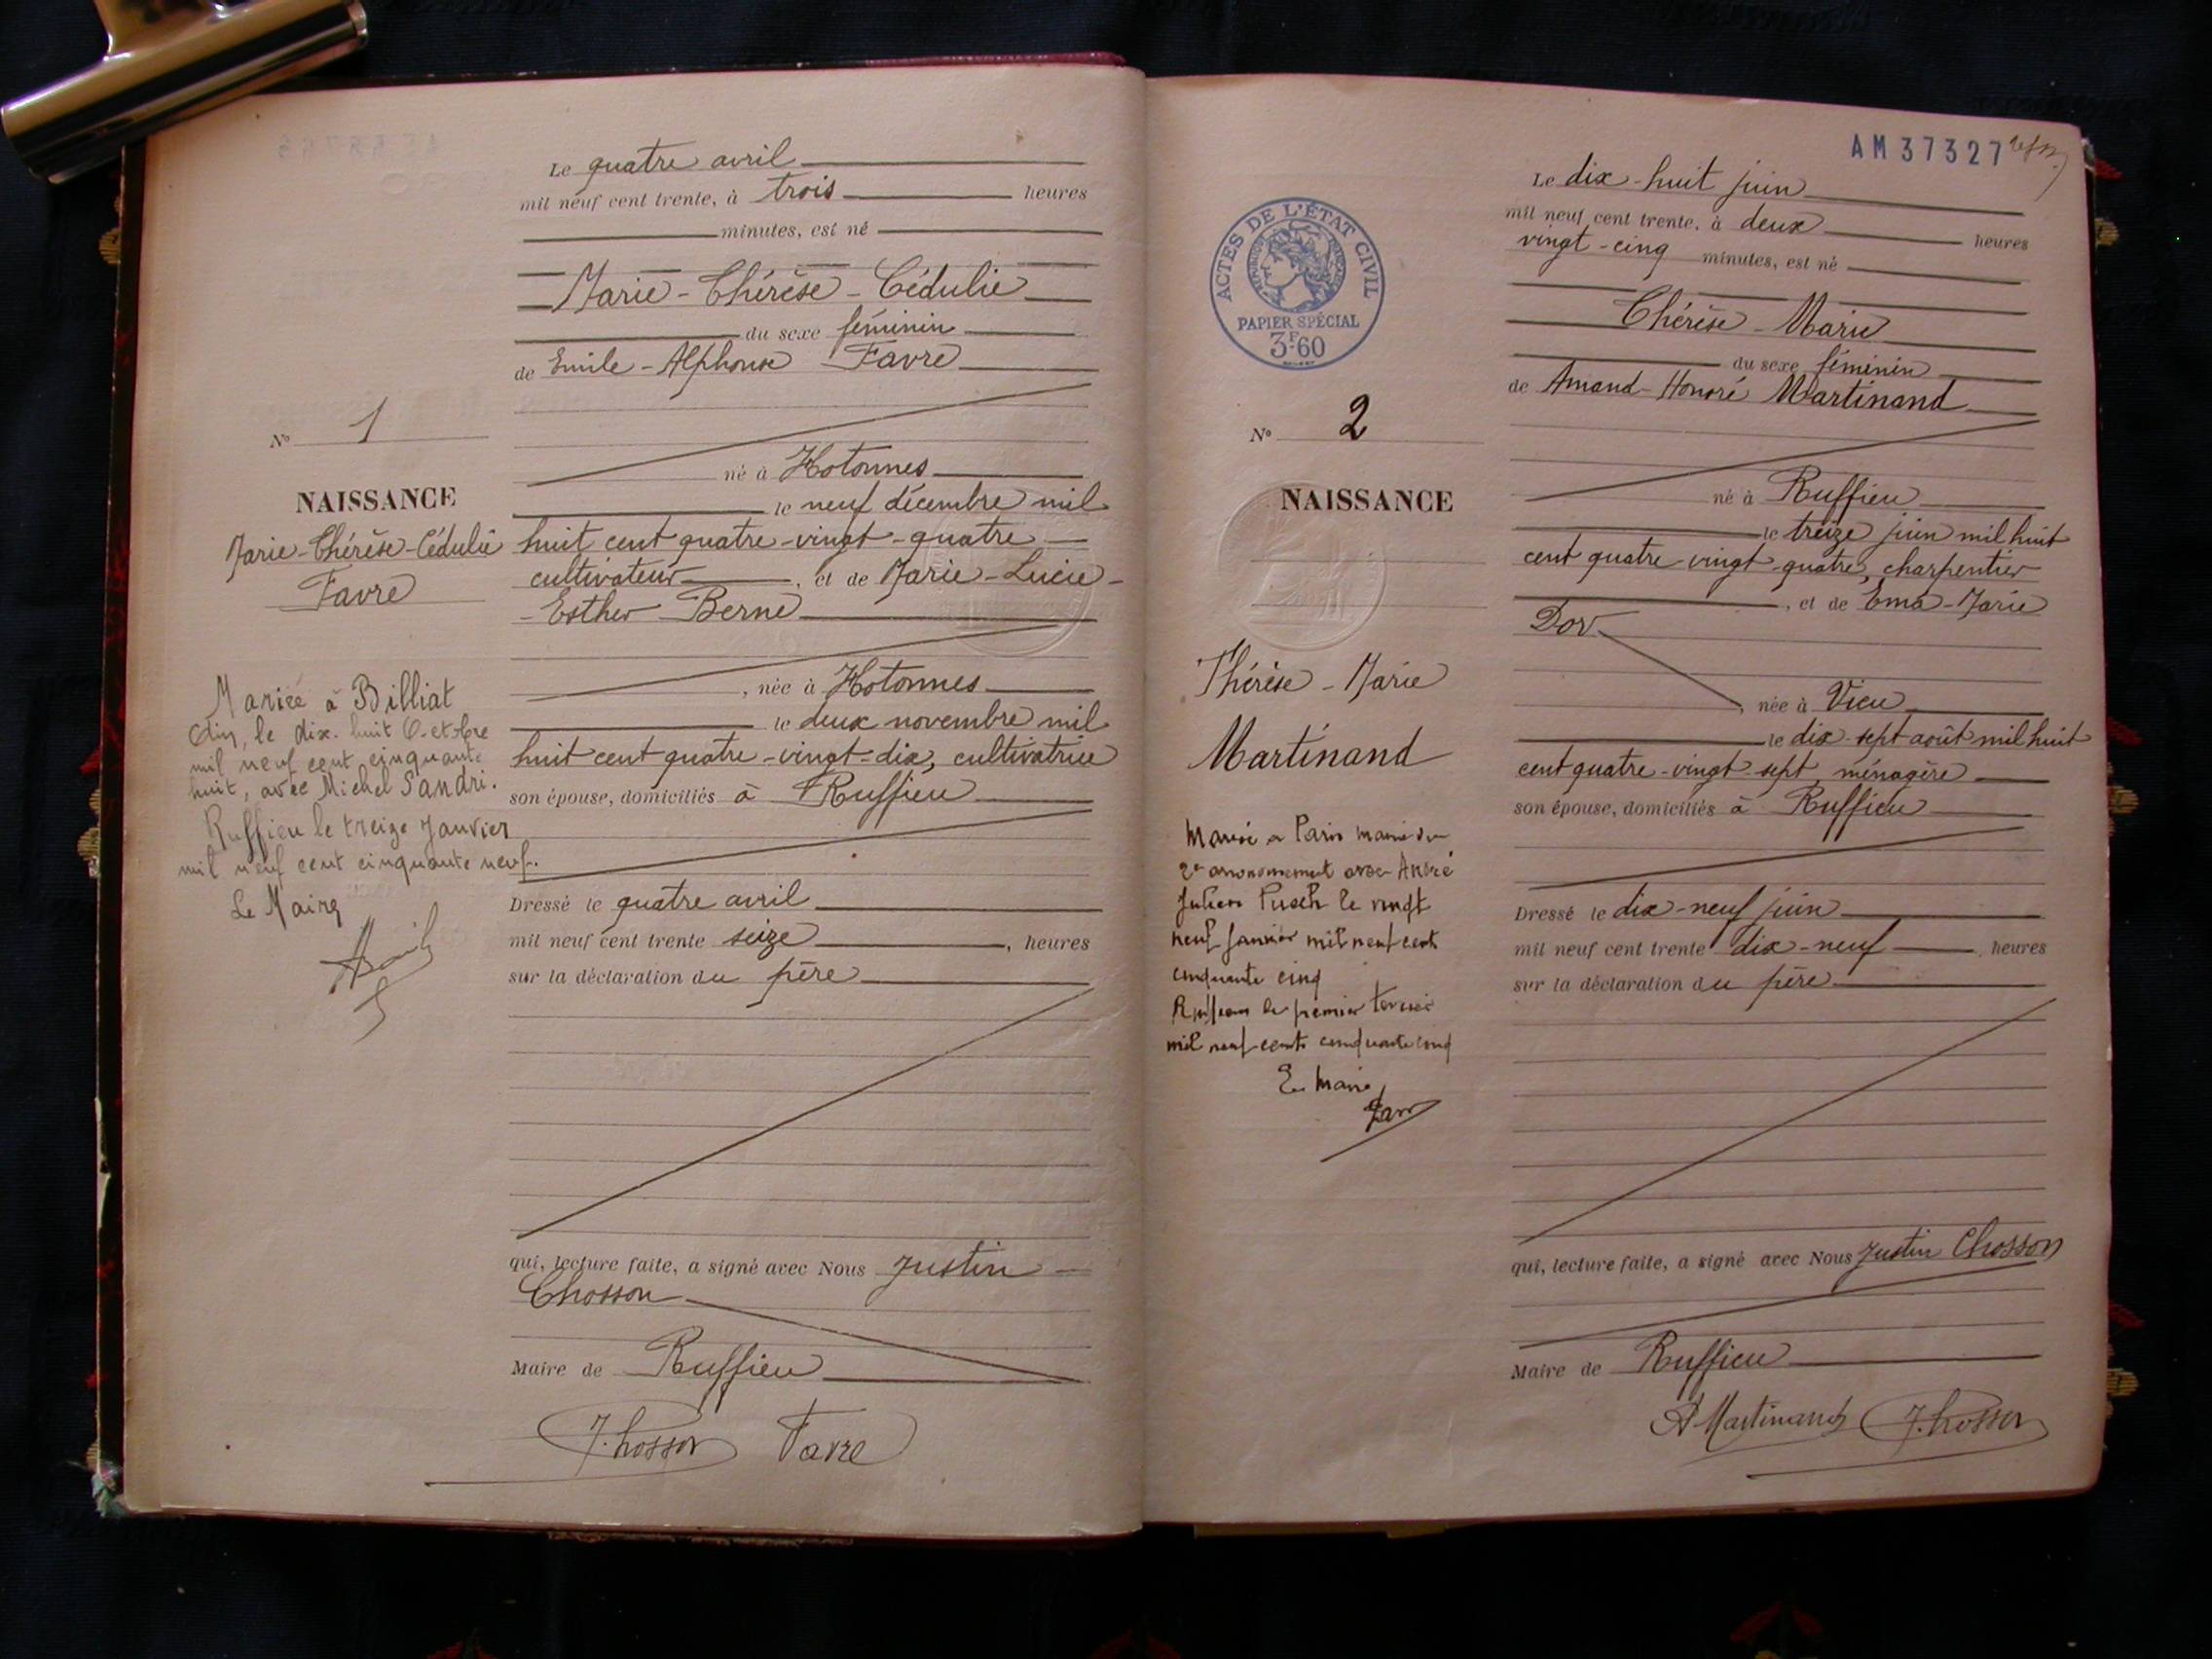 Le quatre avril
mil neuf cent trente, à trois heures
minutes, est né
Marie-Thérèse-Cédulie
du sexe féminin
de Emile-Alphonse Favre
N° 1
né à Hotonnes
NAISSANCE
le neuf décembre mil
Marie-Thérèse-Cédulie
Favre
huit cent quatre-vingt-quatre
cultivateur, et de Marie-Lucie-
-Esther Berne
, née à Hotonnes
le deux novembre mil
huit cent quatre-vingt-dix, cultivatrice
son épouse, domiciliés à Ruffieu
Mariée à Billiat
Ain, le dix-huit Octobre
mil neuf cent cinquante
huit, avec Michel Sandri.
Ruffieu le treize Janvier
mil neuf cent cinquante neuf.
Le Maire
Dressé le quatre avril
mil neuf cent trente seize, heures
sur la déclaration du père
qui, lecture faite, a signé avec Nous Justin
Chosson
Maire de Ruffieu
J. Chosson Favre
AM 37327
ACTES DE L'ÉTAT CIVIL
PAPIER SPÉCIAL
3F60
Le dix-huit juin
mil neuf cent trente, à deux heures
vingt-cinq minutes, est né
Thérèse-Marie
du sexe féminin
de Amand-Honoré Martinand
N° 2
né à Ruffieu
NAISSANCE
le treize juin mil huit
cent quatre-vingt-quatre, charpentier
, et de Ema-Marie
Dor
Thérèse-Marie
Martinand
, née à Vieu
le dix-sept août mil huit
cent quatre-vingt-sept, ménagère
son épouse, domiciliés à Ruffieu
Marié a Paris mairie du
arrondissement avec André
Julien le vingt
neuf Janvier mil neuf cent
cinquante cinq
Ruffieu le premier
mil neuf cent cinquante cinq
Le Maire
Dressé le dix-neuf juin
mil neuf cent trente dix-neuf, heures
sur la déclaration du père
qui, lecture faite, a signé avec Nous Justin Chosson
Maire de Ruffieu
A Martinand J. Chosson